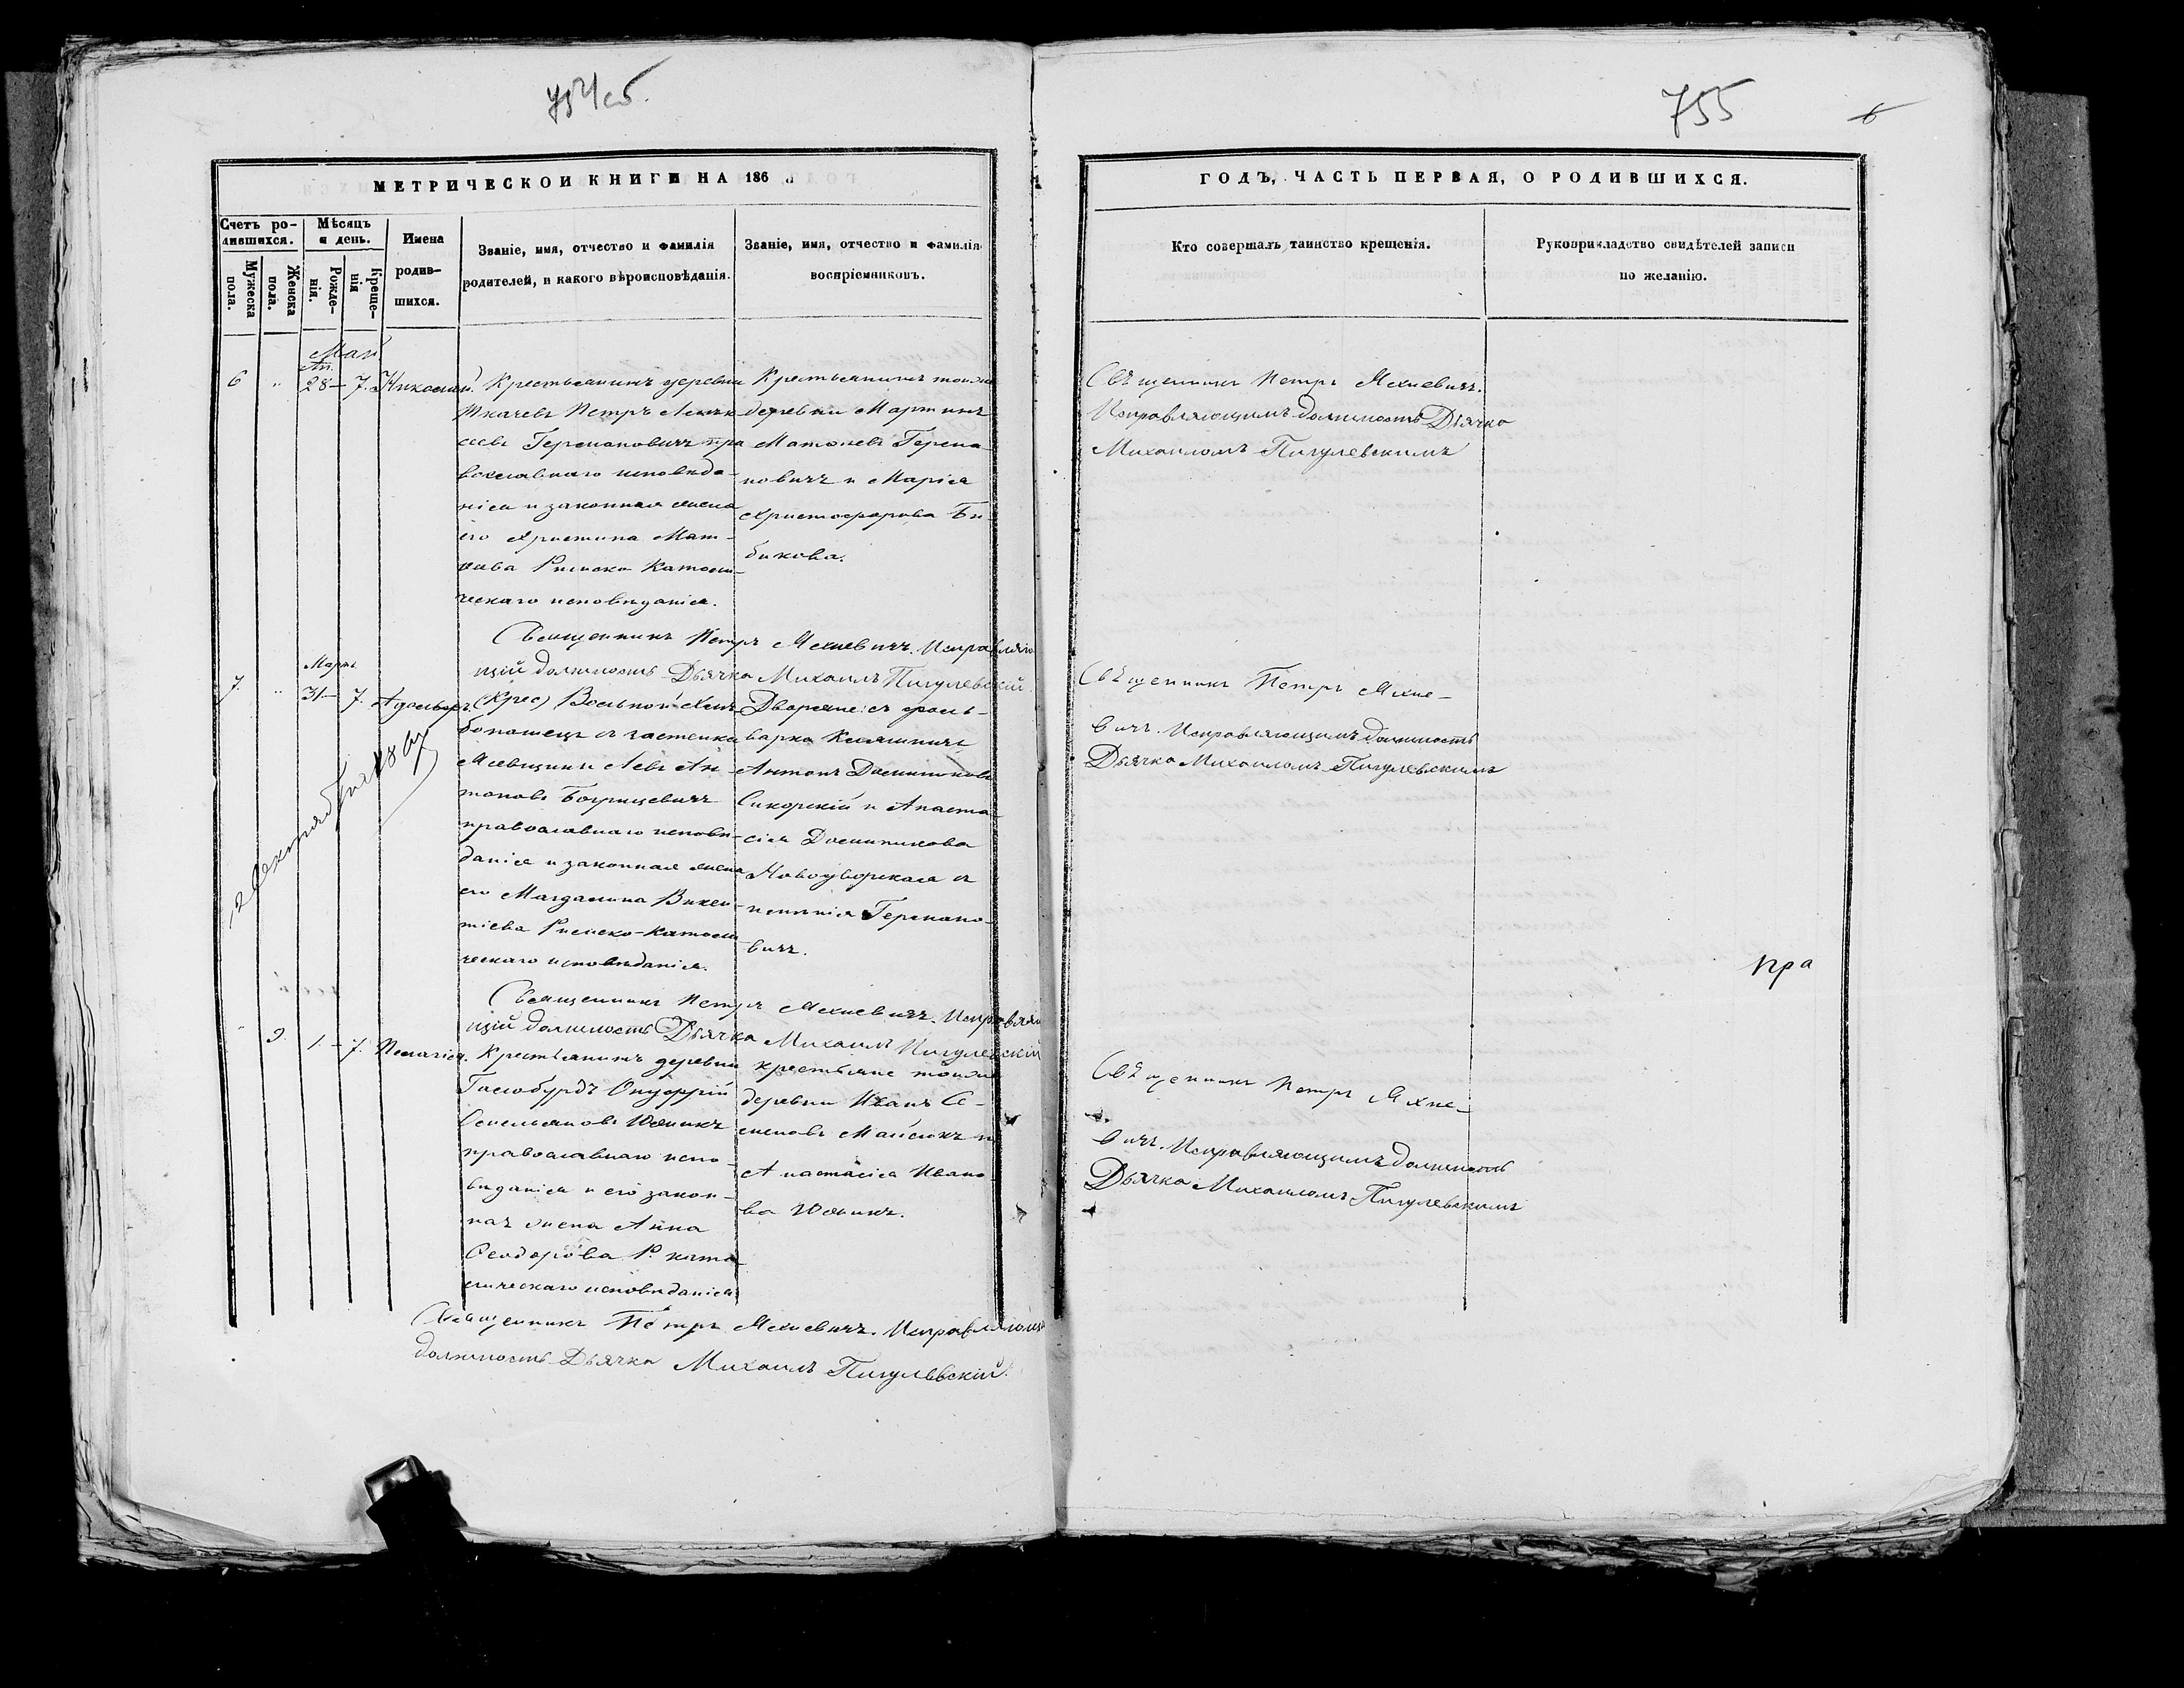 754 об.
755
6
МЕТРИЧЕСКОЙ КНИГИ НА 186
ГОДЪ, ЧАСТЬ ПЕРВАЯ, О РОДИВШИХСЯ.
Счетъ ро-
дившихся.
Мужеска
пола.
Женска
пола.
Мѣсяцъ
и день.
Рожде-
нія.
Креще-
нія
Имена
родив-
шихся.
Званіе, имя, отчество и фамилія
родителей, и какого вѣроисповѣданія.
Званіе, имя, отчество и фамилія
воспріемниковъ.
Кто совершалъ таинство крещенія.
Рукоприкладство свидѣтелей записи
по желанію.
Май
Ап.
6 " 28 — 7. Николай
Крестьянинъ деревни
Ткачевъ Петръ
Германовичъ пра
вославнаго исповѣда-
нія и законная жена
его Христина Мат-
Римско Католи-
ческаго исповѣданія.
Крестьянинъ тойже
деревни Мартинъ
Германо-
новичъ и Марія
Христофорова Би-
бикова.
Священникъ Петръ Мехневичъ.
Исправляющимъ должность Дьячка
Михаиломъ Пигулевскимъ
Священникъ Петръ Мехневичъ. Исправляю
щій должность Дьячка Михаилъ Пигулевскій
Мартъ
7. " 31 — 7. Адольфъ.
(Крес) Вольной Хлѣ-
бопашецъ съ застенка
Левъ Ан-
тоновъ
православнаго исповѣ-
данія и законная жена
его Магдалина Викен-
тіева Римско-Католи
ческаго исповѣданія.
Дворяне: съ фоль-
варка
Антонъ Доминиковъ
Сикорскій и Анаста-
сія Доминикова
Новодворская съ
имѣнія Германо-
вичъ.
Священникъ Петръ Мехне-
вичъ. Исправляющимъ должность
Дьячка Михаиломъ Пигулевскимъ
Священникъ Петръ Мехневичъ. Исправляю
щій должность Дьячка Михаилъ Пигулевскій
" 9. 1. — 7. Пелагія.
Крестьянинъ деревни
Онуфрій
Юшникъ
православнаго испо-
вѣданія и его закон-
ная жена Анна
Феодорова Р. като
лическаго исповѣданія
крестьяне тойже
деревни Иванъ Се-
меновъ Майсюкъ и
Анастасія Ивано
ва Юшникъ.
Священникъ Петръ Мехне-
вичъ. Исправляющимъ должность
Дьячка Михаиломъ Пигулевскимъ
Священникъ Петръ Мехневичъ. Исправляющій
должность Дьячка Михаилъ Пигулевскій.
пра